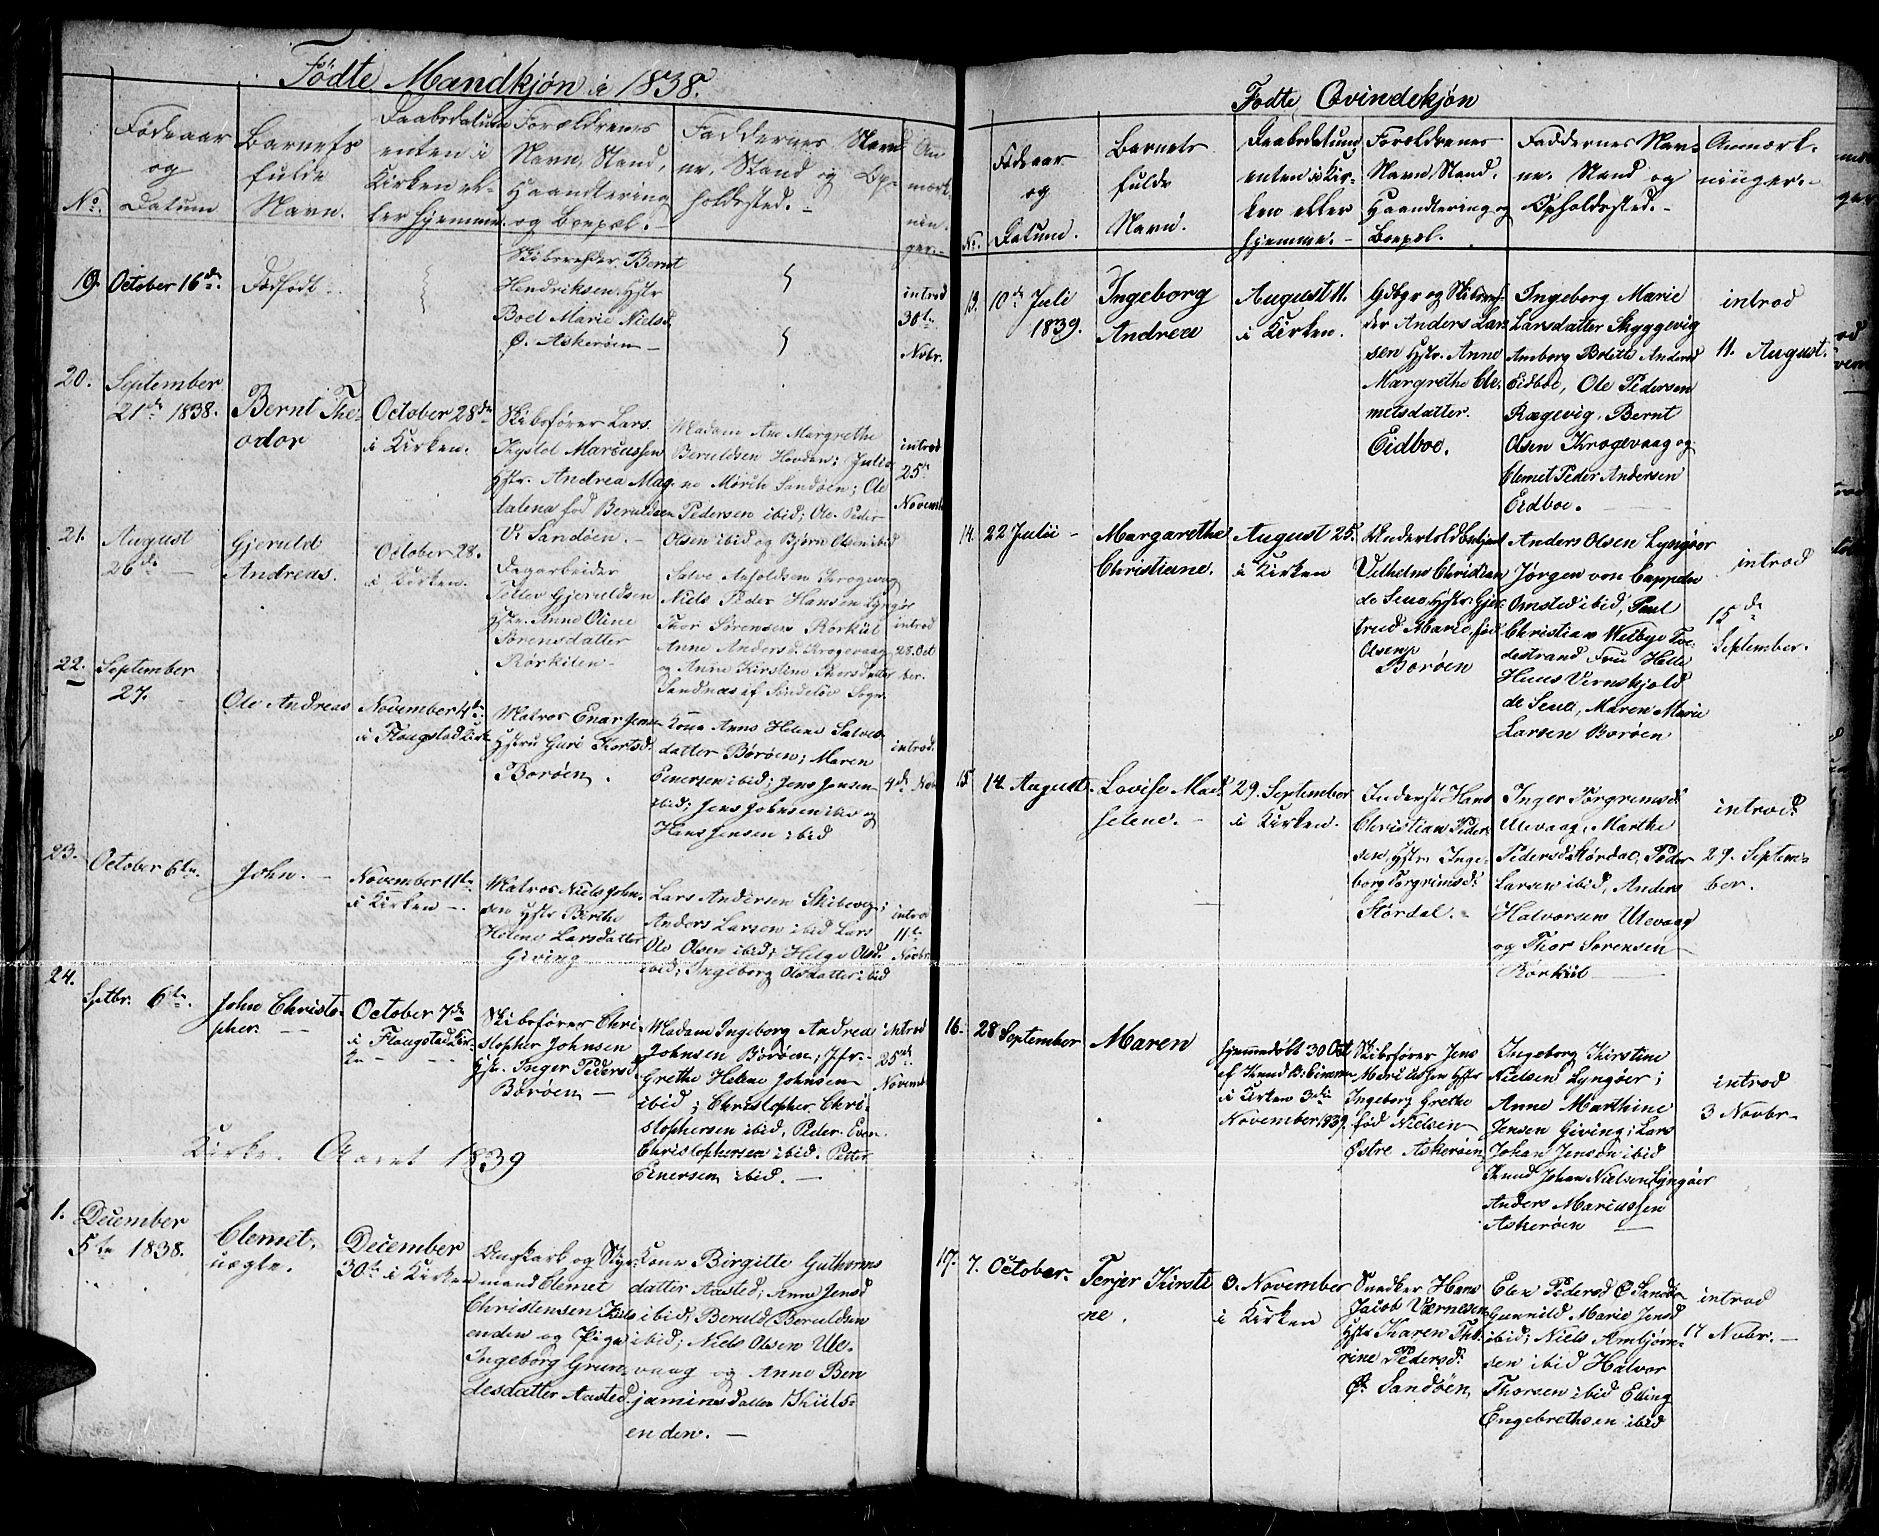 Fødte Mandkjøn i 1838.
No.
Fødeaar
og
Datum
Barnets
fulde
Navn.
Daabsdatum
enten i
Kirken el-
ler hjemme.
Forældrenes
Navn, Stand,
Haandtering
og Boepæl. -
Faddernes Navn
ne, Stand og Op-
holdssted. -
An
mærk-
nin-
ger. -
19. October 16de
Dødfødt.
Skibsreder Bernt
Hendriksen, Hstr
Boel Marie Nielsd.
Ø. Askerøen -
introd
30te
Novbr.
20. September
21de 1838.
Bernt The-
odor
October 28de
i Kirken.
Skibsfører Lars
Kystol Marcussen
Hstr. Andrea Mag-
dalena fød Beruldsen
V. Sandøen. -
Madam Ane Margrethe
Beruldsen Hovden; Julia-
ne Mørch Sandøen; Ole
Pedersen ibid; Ole Peder
Olsen ibid og Bjørn Olsen ibid
introd
25de
Novemb
21. August
26de
Gjeruld
Andreas.
October 28.
i Kirken.
Dagarbeider
Tellev Gjeruldsen
Hstr. Anne Oline
Sørensdatter
Rørkilen -
Salve Aasoldsen Krogevag
Niels Peder Hansen Lyngør
Thor Sørensen Rørkiil
Anne Andersd. Krogevaag
og Anne Kirstine Thorsdatter
Sandnæs af Søndeløv Sogn.
introd
28. Oct
ber.
22. September
27.
Ole Andreas
November 4de
i Flaugstad Kirke
Matros Enar Jensen
Hstru Guri Kortsd.
Borøen.
Kone Anne Helene Salves-
datter Børøen; Maren
Einersen ibid; Jens Jensen
ibid; Jens Johnsen ibid og
Hans Jensen ibid
introd.
4de Nov
23. October 6te.
John. -
November 11te
i Kirken -
Matros Niels John-
sen Hstr Berthe
Helene Larsdatter
Giving
Lars Andersen Skibevig;
Anders Larsen ibid Lars
Ole Olsen ibid; Helge Olsd.
ibid; Ingeborg Olsdatter ibid
introd
11te
Novbr.
24.
Sptbr. 6te.
John Christo-
pher. -
October 7de
i Flaugstad Kir-
ke
Skibsfører Chri-
stopher Johnsen
Hstr. Inger Pedersd.
Borøen -
Madam Ingeborg Andrea
Johnsen Børøen; Jfr. -
Grethe Helene Johnsen
ibid; Christopher Chri-
stophersen ibid, Peder Even
Christophersen ibid. Petter
Einersen ibid. -
introd
25de
Novemb
Kirke. Aaret 1839
1. December
5te 1838.
Clemet.
uægte.
December
30te i Kirken
Ungkarl og Styr-
mand Clemet
Christensen Kiils-
enden og Pige
Ingeborg Grun-
desdatter Aasted
Kone Birgitte Guthorms
datter Aasted; Anne Jensd
ibid; Beruld Beruldsen
ibid; Niels Olsen Ule-
vaag og Anne Ben
jaminsdatter Kiils-
enden. -
Fødte Qvindekjøn
No.
Fødeaar
og
Datum.
Barnets
fulde
Navn.
Daabsdatum
enten i Kir-
ken eller
hjemme. -
Forældrenes
Navn, Stand,
Haandtering og
Boepæl.
Faddernes Nav-
ne, Stand og
Opholdssted. -
Anmærk-
ninger. -
13. 10de Juli
1839.
Ingeborg
Andrea
August 11.
i Kirken.
Gdbgr og Skibsre-
der Anders Lar-
sen Hstr. Anne
Margrethe Cle-
metsdatter.
Eidboe.
Ingeborg Marie
Larsdatter Skyggevig
Amborg Bolette Andersd
Eidboe, Ole Pedersen
Rægevig, Bernt
Olsen Krogevaag og
Clemet Peder Andersen
Eidboe. -
introd
11. August.
14. 22 Julii -
Margarethe
Christiane.
August 25.
i Kirken
Vilhelm Christian
de Seue, Hstr. Gjer-
trud Marie, fød
Olsen
Borøen
Anders Olsen Lyngøer
Jørgen von Cappelen
Omsted ibid, Paul
Christian Welbye Tve-
destrand Fru Helle
Huus Vernskjold
de Seue, Maren Marie
Larsen Borøen
introd
15de
September.
15. 14. August.
Lovise Mad-
selene. -
29. September
i Kirken.
Inderst Hans
Christian Peder-
sen, Hstr. Inge-
borg Torgrimsd.
Størdal. -
Inger Torgrimsd.
Ulevaag, Marthe
Pedersd Størdal, Peder
Larsen ibid, Anders
Halvorsen Ulevaag
og Thor Sørensen
Rørkiil
introd.
29. Septem-
ber.
16. 28 September
Maren
hjemmedøbt 30 Oct
af Knud B. Einersen
i Kirken 3die
November 1839.
Skibsfører Jens
Marcussen Hstr
Ingeborg Grethe
fød Nielsen
Østre Askerøen
Ingeborg Kirstine
Nielsen Lyngøer;
Anne Marthine
Jensen Giving; Lars
Johan Jensen ibid
Knud Johan Nielsen Lyngøer
Anders Marcussen
Askerøen
introd
3 Novbr -
17. 7. October.
Terjer Kirsti
ne.
3. November
i Kirken
Snedker Hans
Jacob Værnesen
Hstr Karen Th-
rine Pedersd.
Ø. Sandøen
Elen Pedersd Ø Sandøen
Gunnild Marie Jensd
ibid; Niels Arnbjørn-
sen ibid Halvor
Thorsen ibid Elling
Engebrethsen ibid
introd
17 Novbr. -